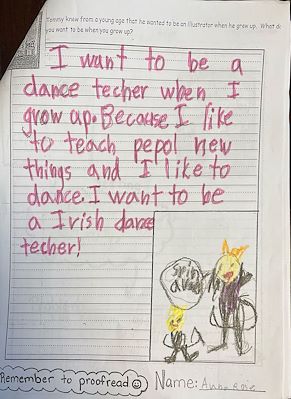 Tommy knew from a young age that he wanted to be an illustrator when he grew up. What do
you want to be when you grow up?
I want to be a
dance techer when I
grow up. Because I like
to teach pepol new
things and I like to
dance. I want to be
a Irish danze
techer!
Remember to proofread
Name: Anna